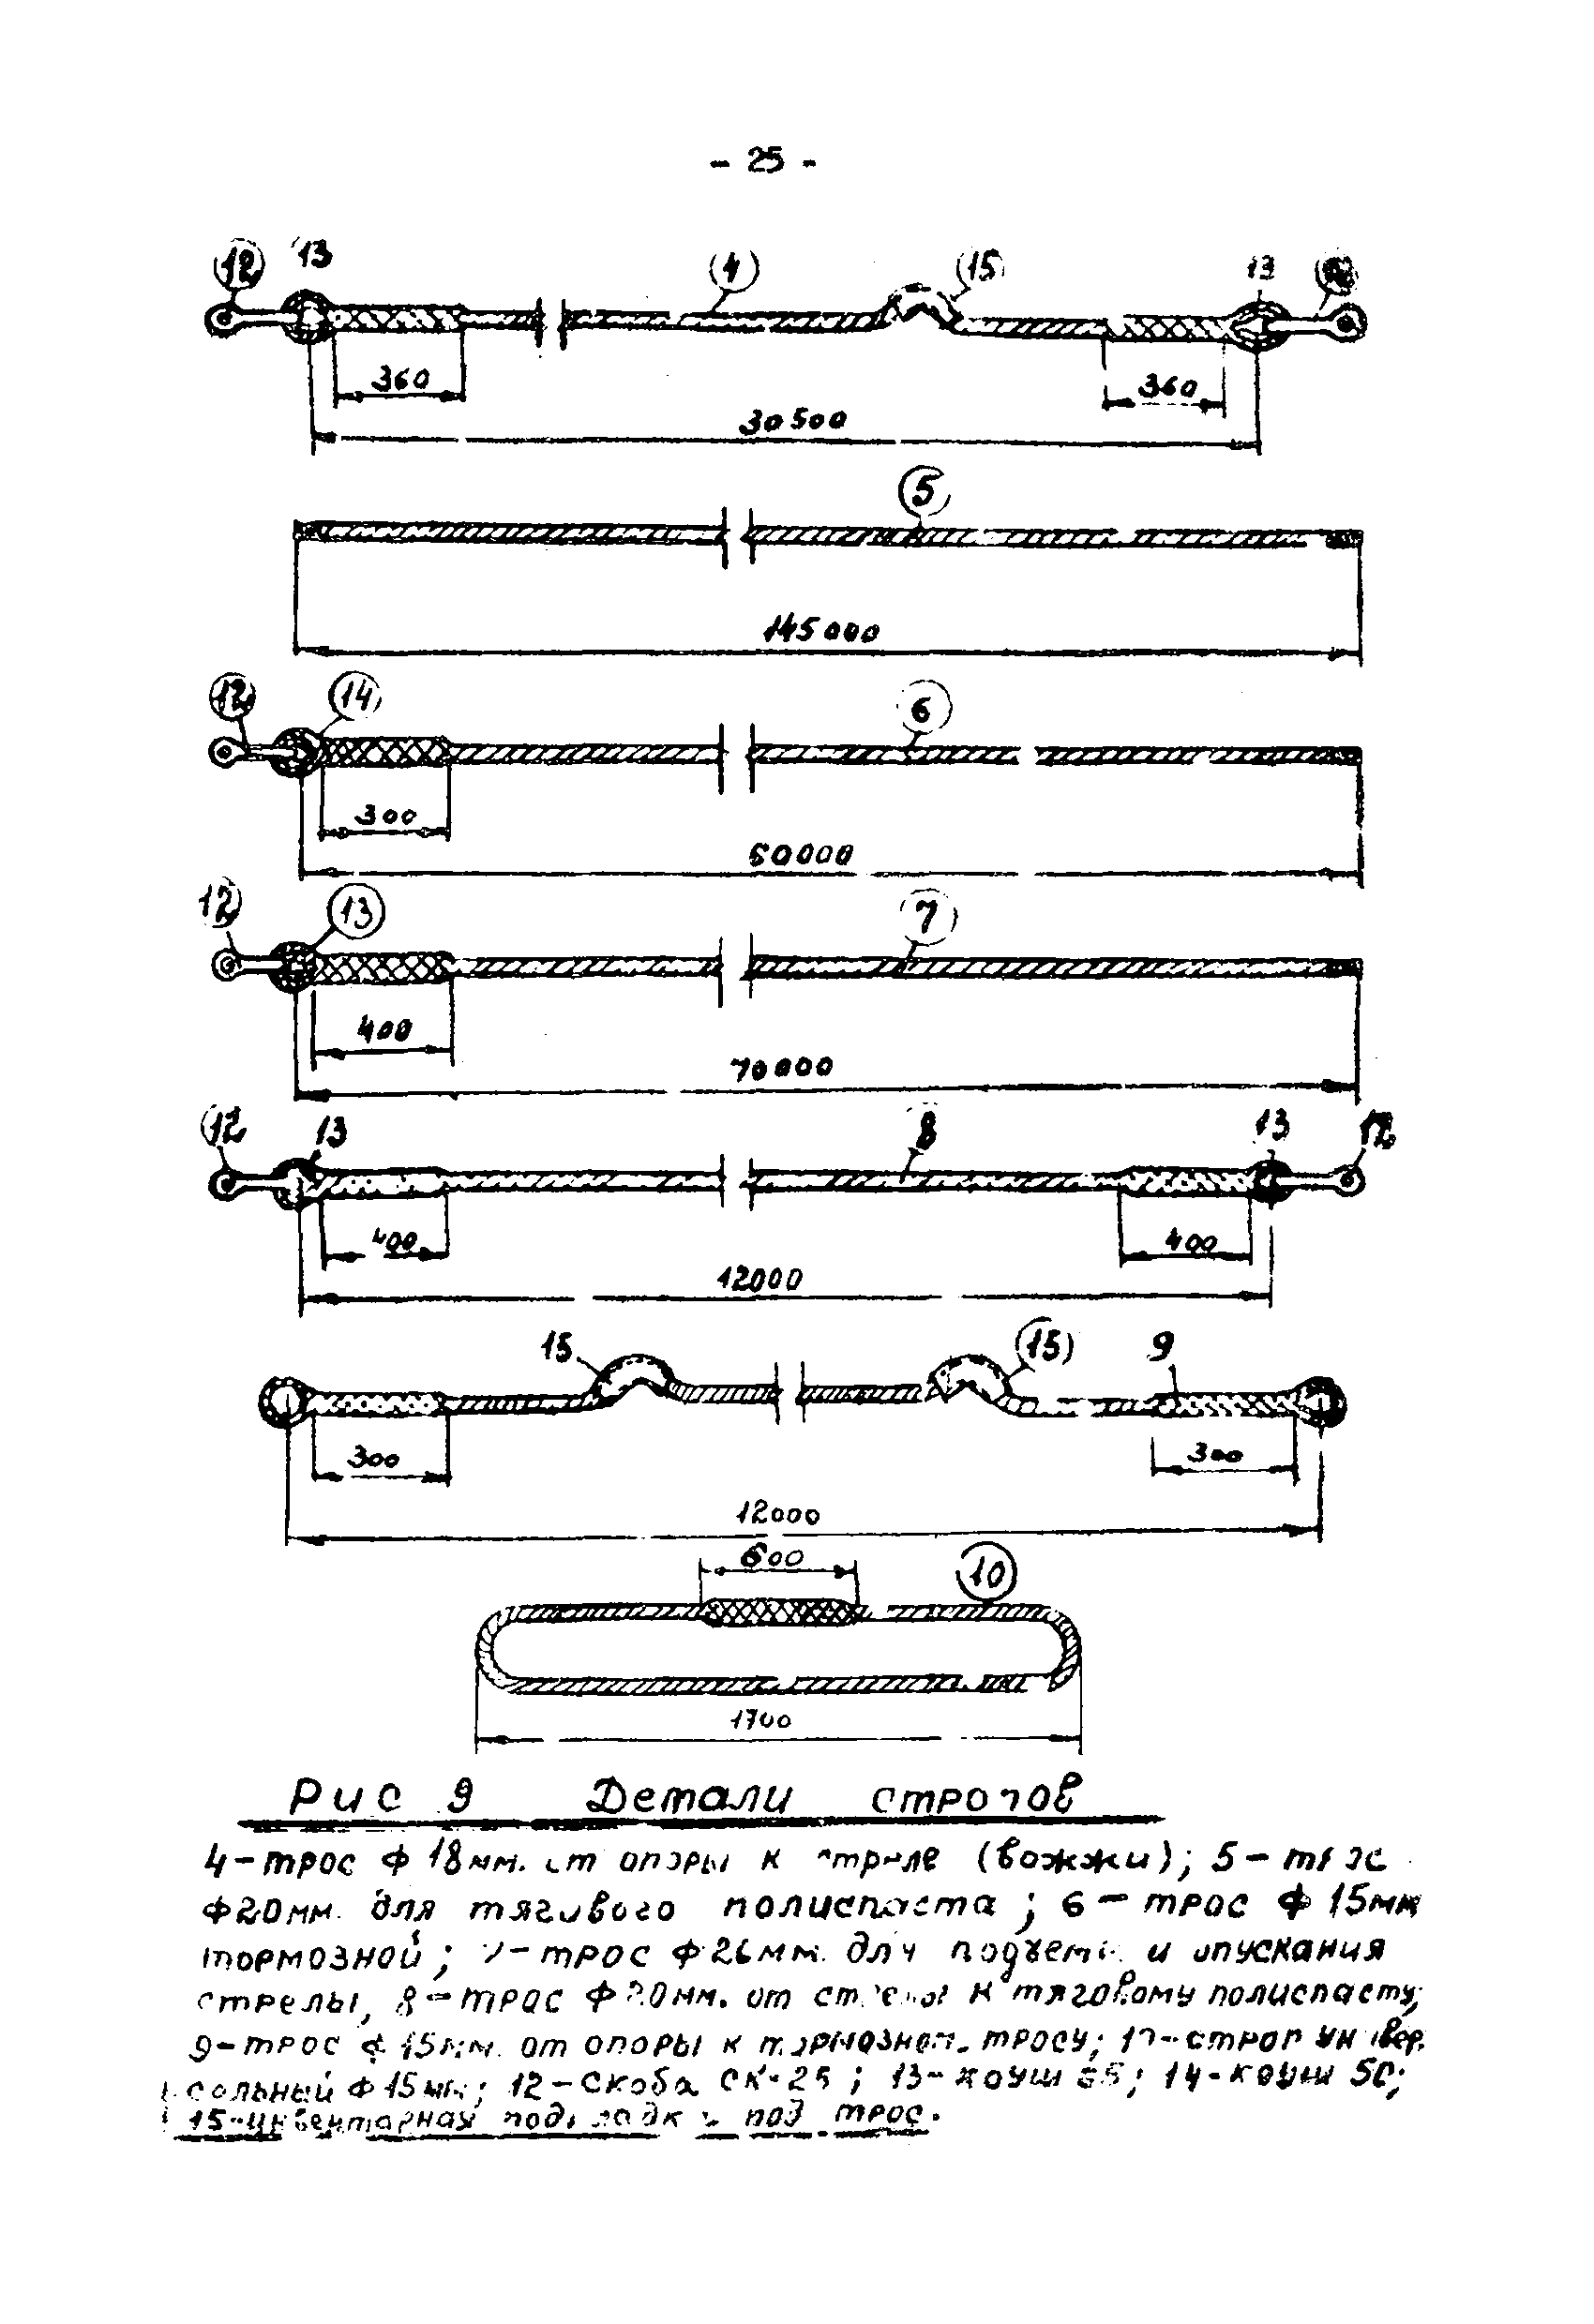 - 25 -
12 13 4 15 13
360 360
30500
5
145000
12 14 6
300
60000
12 13 7
400
70000
12 13 8 13 12
400 400
12000
15 15 9
300 300
12000
600
10
1700
Рис 9 Детали стропов
4-трос ф 18мм. от опоры к стреле (вожжи); 5- трос
ф20мм. для тягового полиспаста; 6- трос ф 15мм
тормозной; 7-трос ф26мм. для подъема и опускания
стрелы, 8-трос ф20мм. от стрелы к тяговому полиспасту;
9-трос ф 15мм. от опоры к тормозном. тросу; 10-строп универ.
сальный ф15мм; 12-скоба СК-25; 13-коуш 14-коуш 50;
15-инвентарная подкладка под трос.